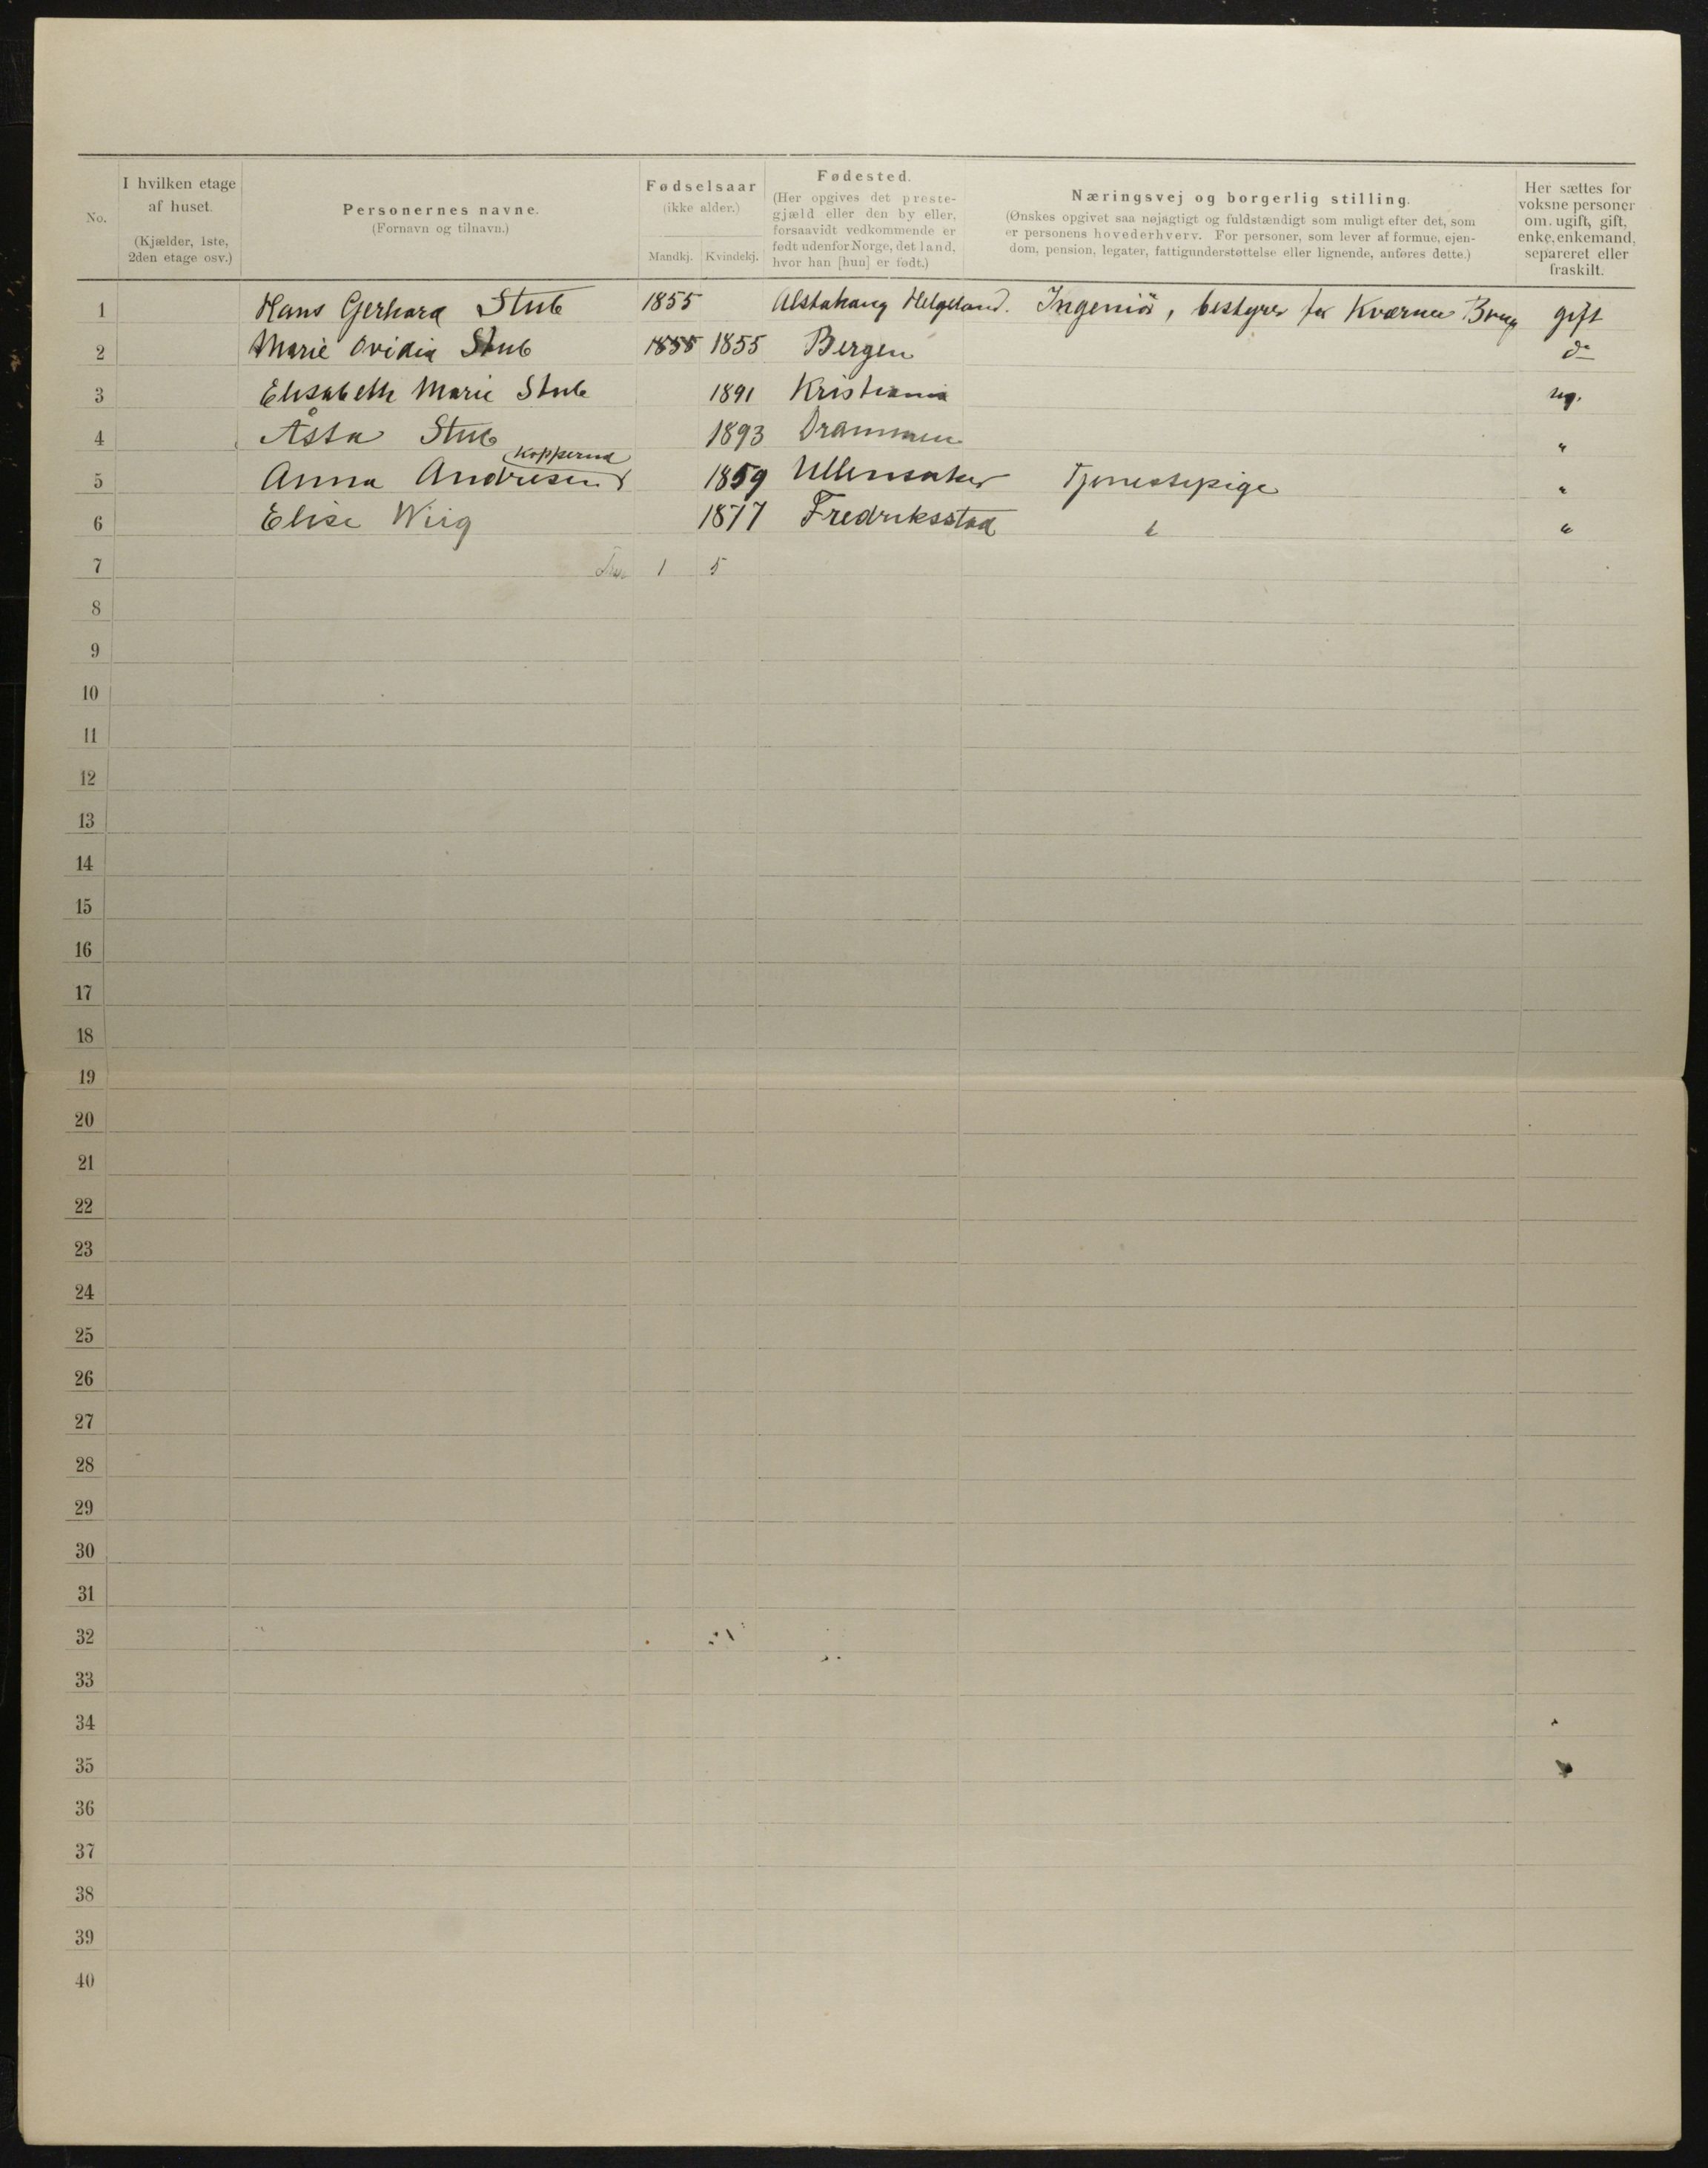 No.
I hvilken etage af huset.
(Kjælder, 1ste, 2den etage osv.)
Personernes navne.
(Fornavn og tilnavn.)
Fødselsaar
(ikke alder.)
Mandkj. Kvindekj.
Fødested.
(Her opgives det preste-
gjæld eller den by eller,
forsaavidt vedkommende er
født udenfor Norge, det land,
hvor han [hun] er født.)
Næringsvej og borgerlig stilling.
(Ønskes opgivet saa nøjagtigt og fuldstændigt som muligt efter det, som
er personens hovederhverv. For personer, som lever af formue, ejen-
dom, pension, legater, fattigunderstøttelse eller lignende, anføres dette.)
Her sættes for
voksne personer
om. ugift, gift,
enke, enkemand,
separeret eller
fraskilt.
1 Hans Gerhard Stub 1855 Alstahaug Helgeland. Ingeniör, bestyrer for Kværner Brug gift
2 Marie Ovidia Stub 1855 1855 Bergen do
3 Elisabeth Marie Stub 1891 Kristiania ug.
4 Åsta Stub 1893 Drammen "
Kopperud
5 Anna Andresen 1859 Ullensaker Tjenestepige "
6 Elise Wiig 1877 Fredriksstad " "
7 1 5
8
9
10
11
12
13
14
15
16
17
18
19
20
21
22
23
24
25
26
27
28
29
30
31
32
33
34
35
36
37
38
39
40